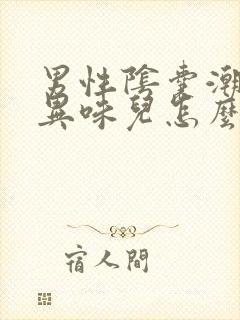 男性陰囊潮
異味兒怎麼
宿人間